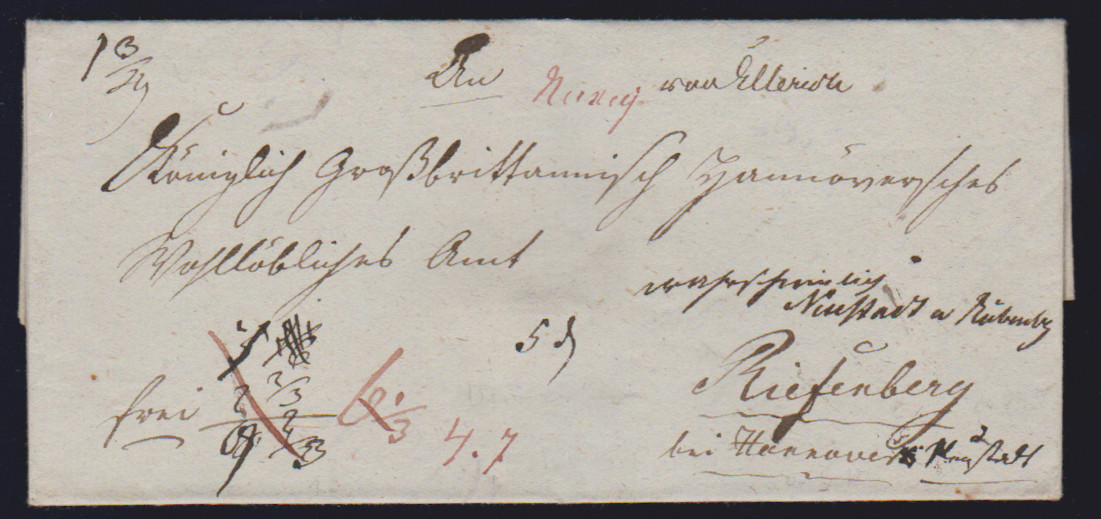 1 3/4
An von Ellerich
Königlich Großbrittannisch Hannöversches
Wohllöbliches Amt
wahrscheinlich
Neustadt a Rübenbg
5 d
Riefenberg
frei
6 1/3
4.7
bei Hannover Neustadt